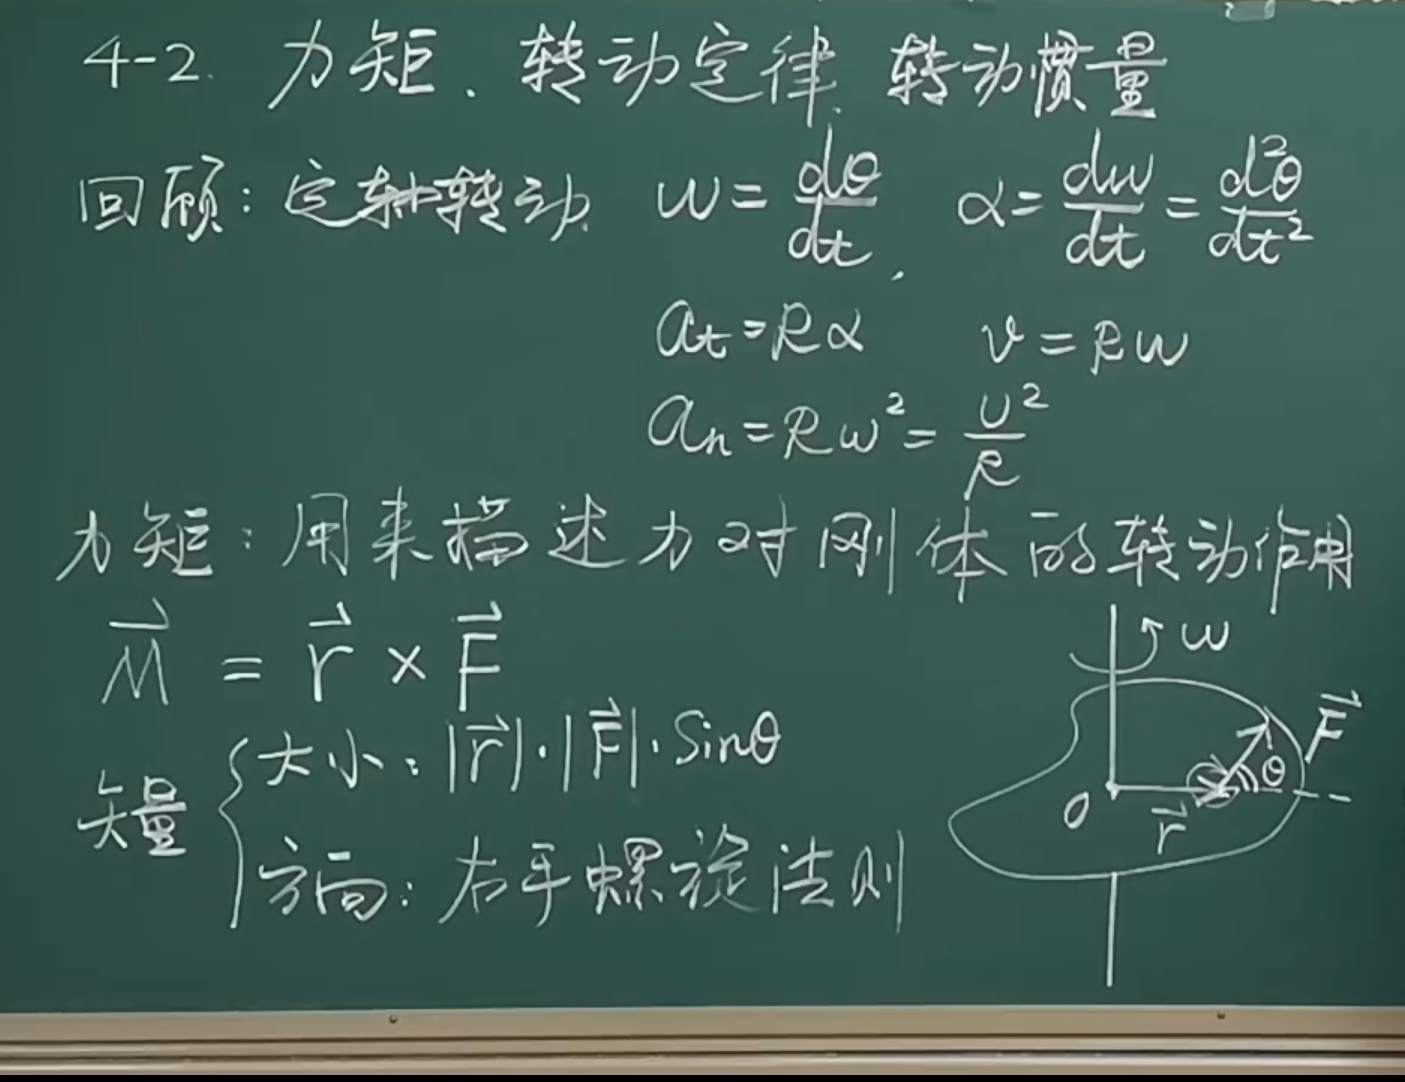 4-2. 力矩、转动定律、转动惯量
回顾：定轴转动 ω = dθ/dt, α = dω/dt = d²θ/dt²
a_t = Rα v = Rω
a_n = Rω² = v²/R
力矩：用来描述力对刚体的转动作用
M⃗ = r⃗ × F⃗
矢量 { 大小：|r⃗|·|F⃗|·sinθ
方向：右手螺旋法则
ω
F⃗
θ
O
r⃗